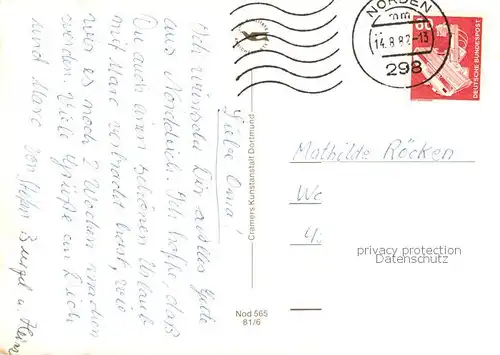 Liebe Oma!
Ich wünsche Dir alles Gute
aus Norddeich. Ich hoffe, daß
Du auch einen schönen Urlaub
mit Marc verbracht hast, wie
wir es noch 2 Wochen machen
werden. Viele Grüße an Dich
und Marc von Stefan
Cramers Kunstanstalt Dortmund
Nod 565
81/6
NORDEN
mm
14.8.82-13
298
60
DEUTSCHE BUNDESPOST
Mathilde Röcken
privacy protection
oldthing.de